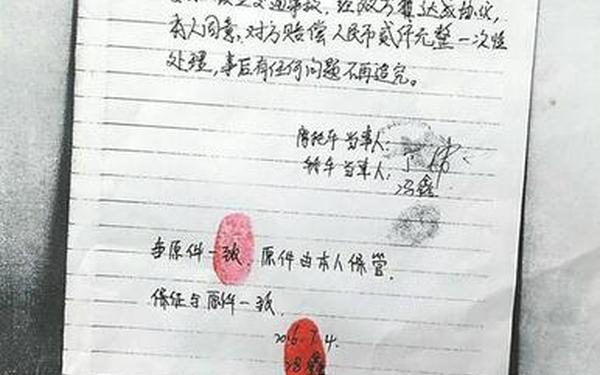 发生交通事故，经双方算达成协议，
本人同意，对方赔偿人民币贰仟元整一次性
处理，事后有任何问题不再追究。
摩托车当事人：丁伟
轿车当事人，冯鑫
与原件一致，原件由本人保管。
保证与原件一致
2016.7.4.
冯鑫